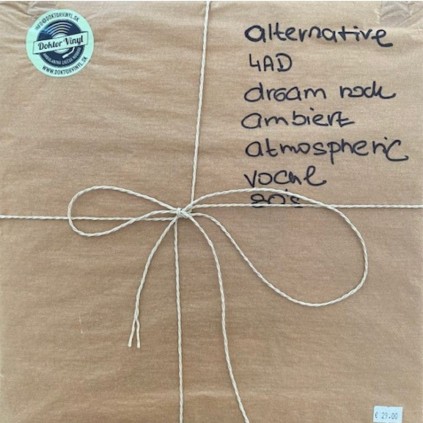 INFO@DOKTORVINYL.SK
Doktor Vinyl
WWW.DOKTORVINYL.SK
alternative
4AD
dream rock
ambient
atmospheric
vocal
80's
€ 21.00